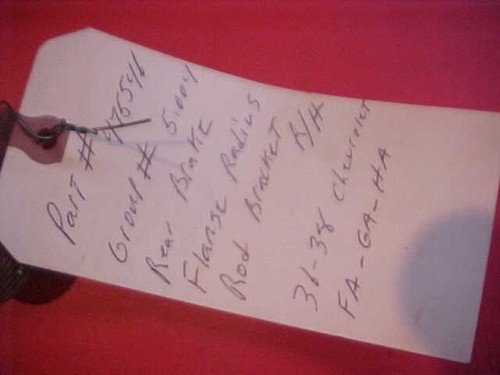 Part # 476546
Group # 5.004
Rear Brake
Flange Radius
Rod Bracket R/H
36-38 Chevrolet
FA-GA-HA